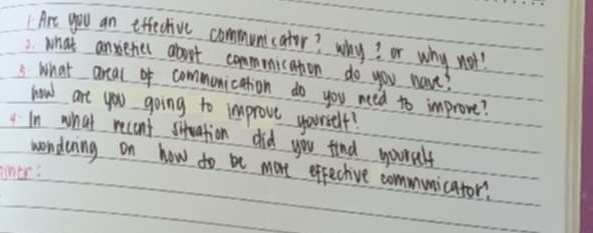 1. Are you an effective communicator? Why? or why not?
2. What anxieties about communication do you have?
3. What areas of communication do you need to improve?
how are you going to improve yourself?
4. In what recent situation did you find yourself
wondering on how to be more effective communicator?